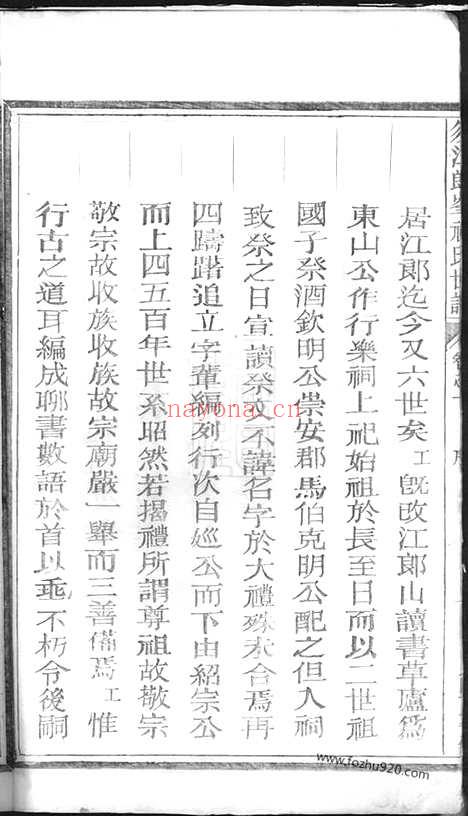 須江郎峯祝氏世譜
居江郎迄今又六世矣工旣改江郞山讀書草廬爲
東山公作行樂祠上祀始祖於長至日而以二世祖
國子祭酒欽明公崇安郡馬伯克明公配之但入祠
致祭之日宣讀祭文不諱名字於大禮殊未合焉再
四躊躇追立字輩編列行次自廵公而下由紹宗公
而上四五百年世系昭然若揭禮所謂尊祖故敬宗
敬宗故收族收族故宗廟嚴一舉而三善備焉工惟
行古之道耳編成聊書數語於首以垂不朽令後嗣
nayona.cn
www.fozhu920.com